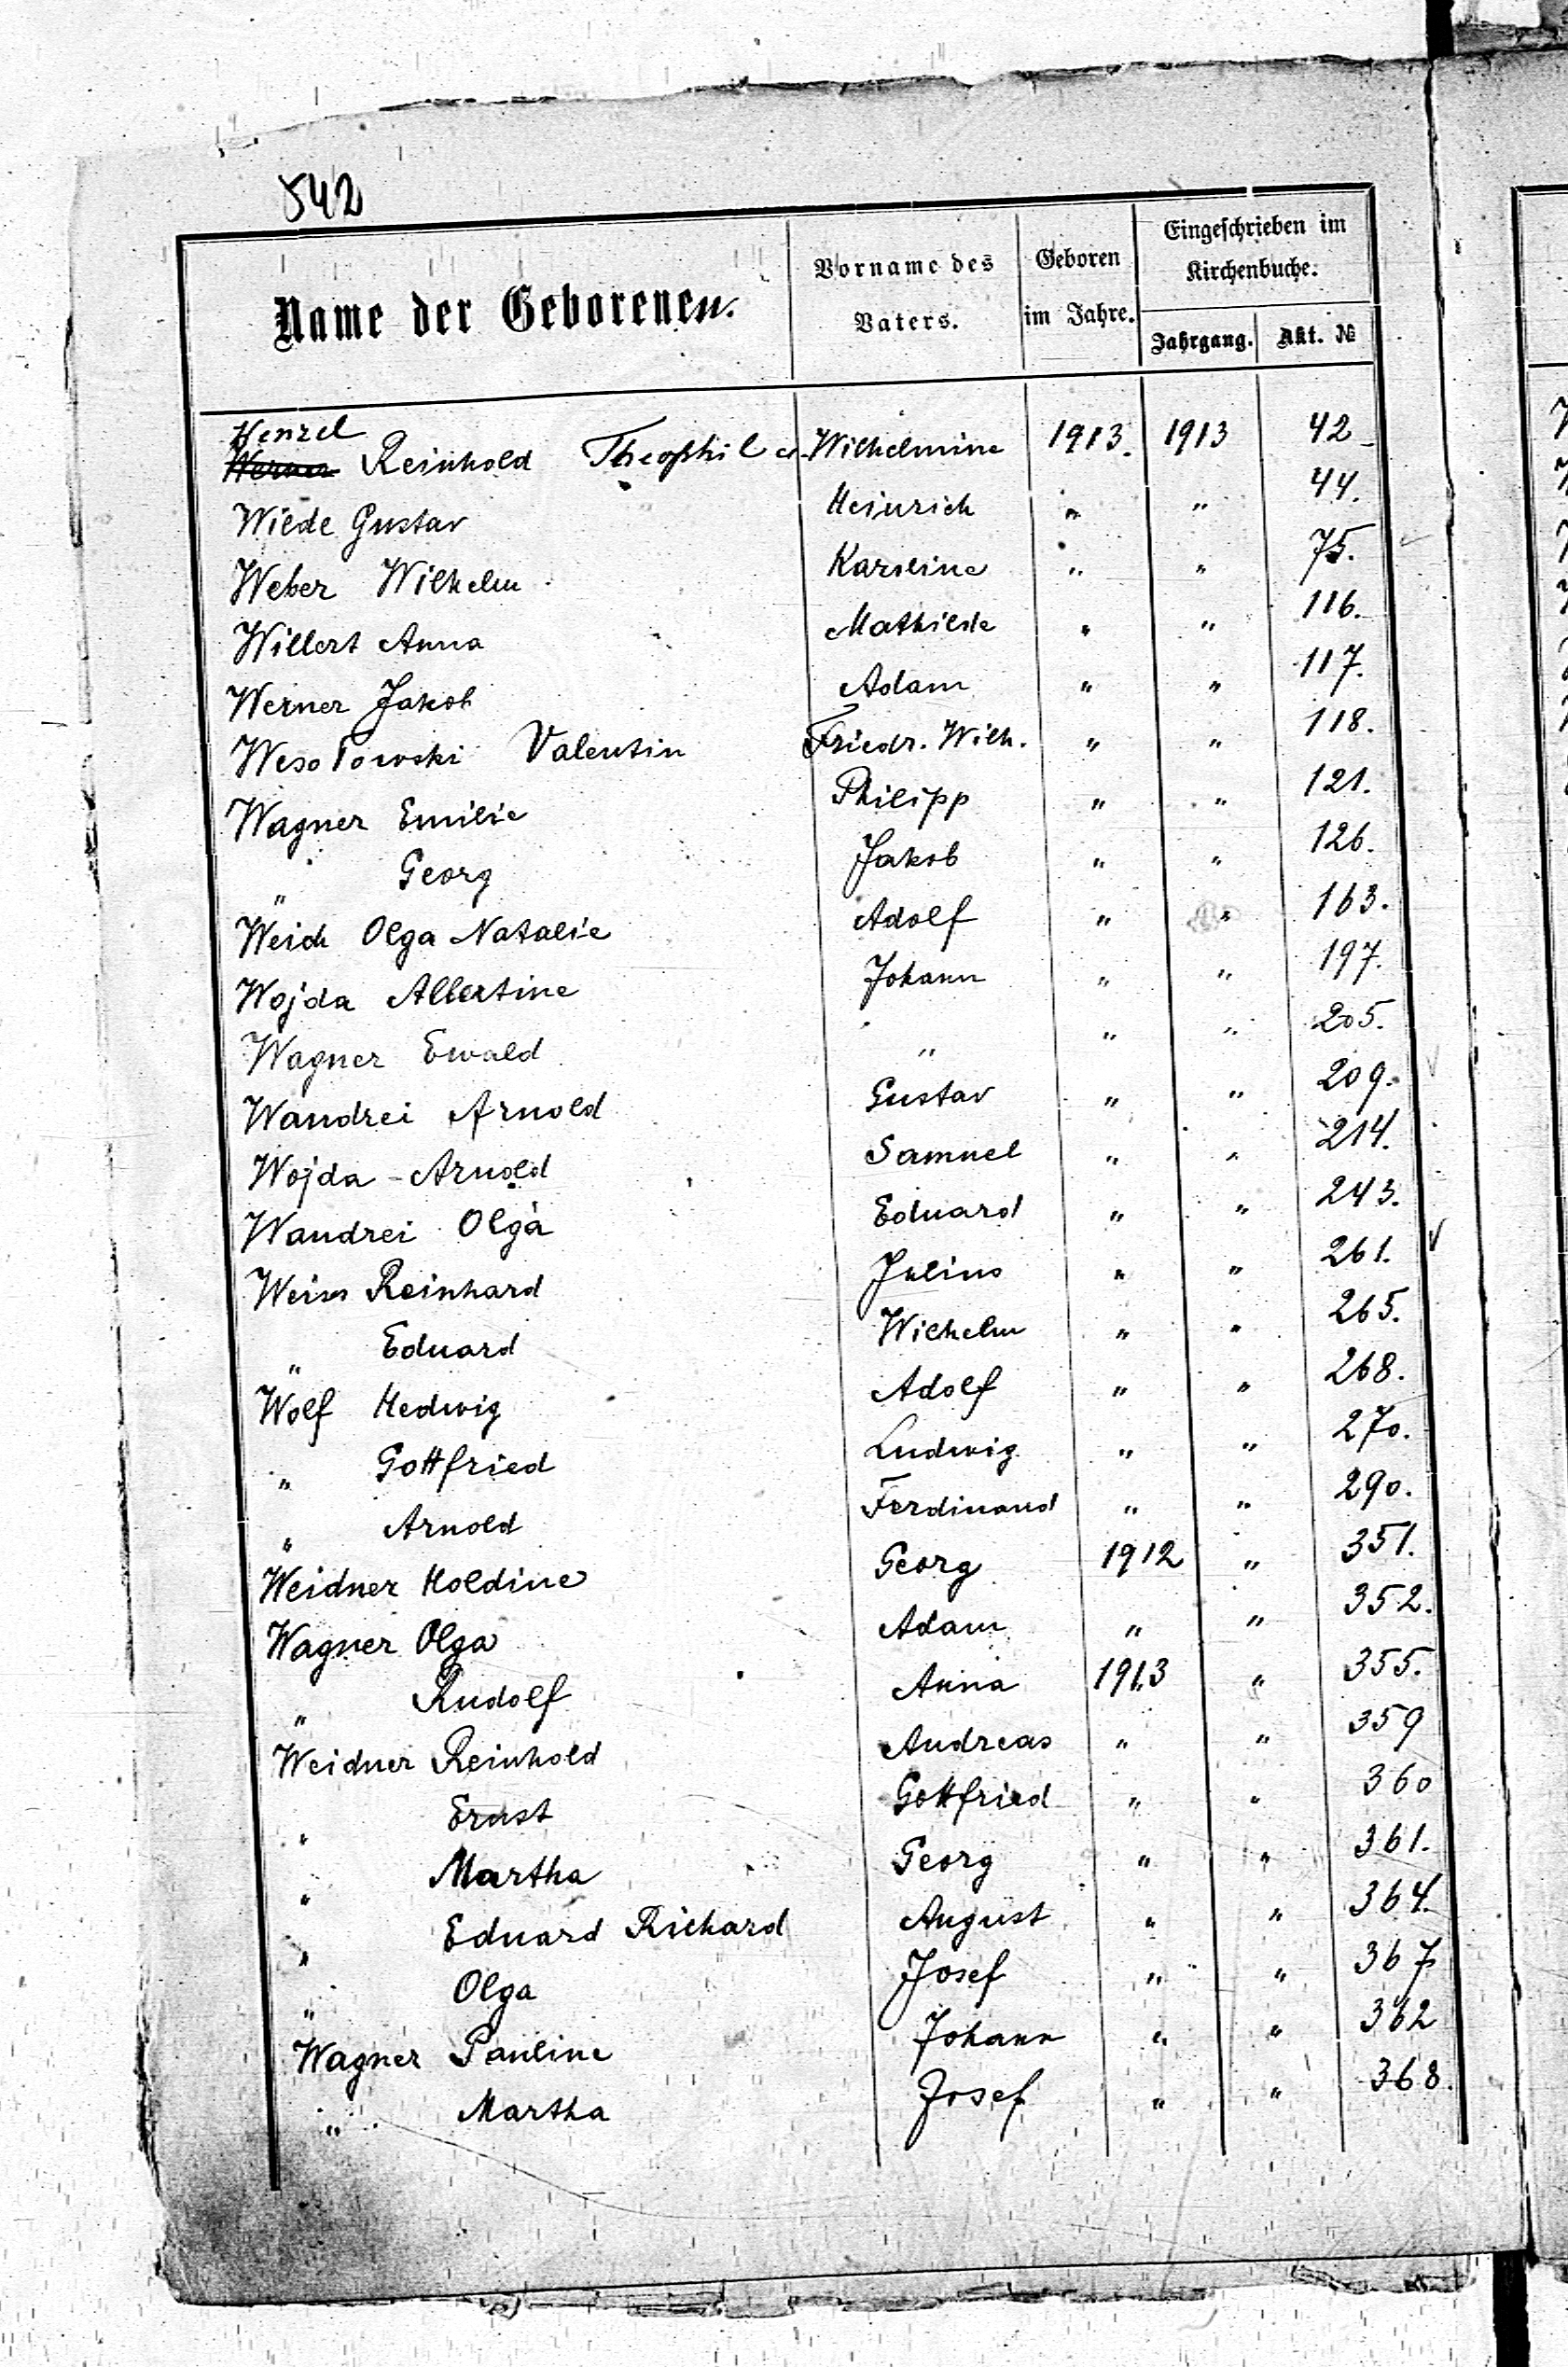 542
Name der Geborenen. Vorname des Vaters. Geboren im Jahre. Eingeschrieben im Kirchenbuche. Jahrgang. Akt. №
Wenzel
Werner Reinhold Theophil Wilhelmine 1913. 1913 42
Wilde Gustav Heinrich " " 44.
Weber Wilhelm Karoline " " 75.
Willert Anna Mathilde " " 116.
Werner Jakob Adam " " 117.
Wesołowski Valentin Friedr. Wilh. " " 118.
Wagner Emilie Philipp " " 121.
" Georg Jakob " " 126.
Weich Olga Natalie Adolf " " 163.
Wojda Albertine Johann " " 197.
Wagner Ewald " " " 205.
Wandrei Arnold Gustav " " 209.
Wojda Arnold Samuel " " 214.
Wandrei Olga Eduard " " 243.
Weiss Reinhard Julius " " 261.
" Eduard Wilhelm " " 265.
Wolf Hedwig Adolf " " 268.
" Gottfried Ludwig " " 270.
" Arnold Ferdinand " " 290.
Weidner Holdine Georg 1912 " 351.
Wagner Olga Adam " " 352.
" Rudolf Anna 1913 " 355.
Weidner Reinhold Andreas " " 359
" Ernst Gottfried " " 360
" Martha Georg " " 361.
" Eduard Richard August " " 364.
" Olga Josef " " 367
Wagner Pauline Johann " " 362
" Martha Josef " " 368.